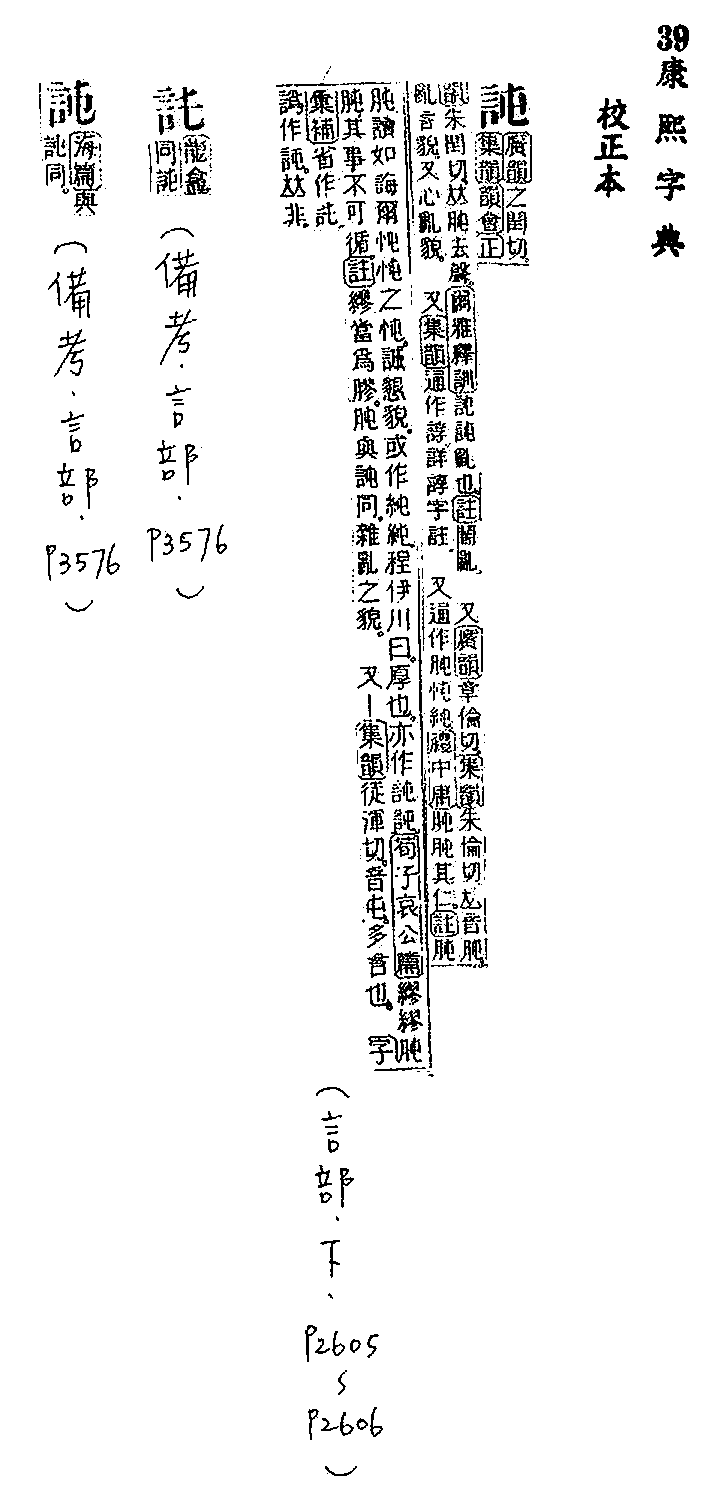 39康熙字典
校正本
訰
廣韻之閏切
集韻韻會正
韻朱閏切𠀤肫去聲爾雅釋訓訰訰亂也註闇亂 又廣韻章倫切集韻朱倫切𠀤音肫
亂言貌又心亂貌 又集韻通作諄詳諄字註 又通作肫忳純禮中庸肫肫其仁註肫
肫讀如誨爾忳忳之忳誠懇貌或作純純程伊川曰厚也亦作訰訰荀子哀公篇繆繆肫
肫其事不可循註繆當爲膠肫與訰同雜亂之貌 又集韻徒渾切音屯多言也 字
彙補省作訰
譌作訰𠀤非
(言部.下.
P2605
~
P2606
)
龍龕
同訰
(備考.言部.
P3576
)
訰
海篇與
訰同
(備考.言部.
P3576
)